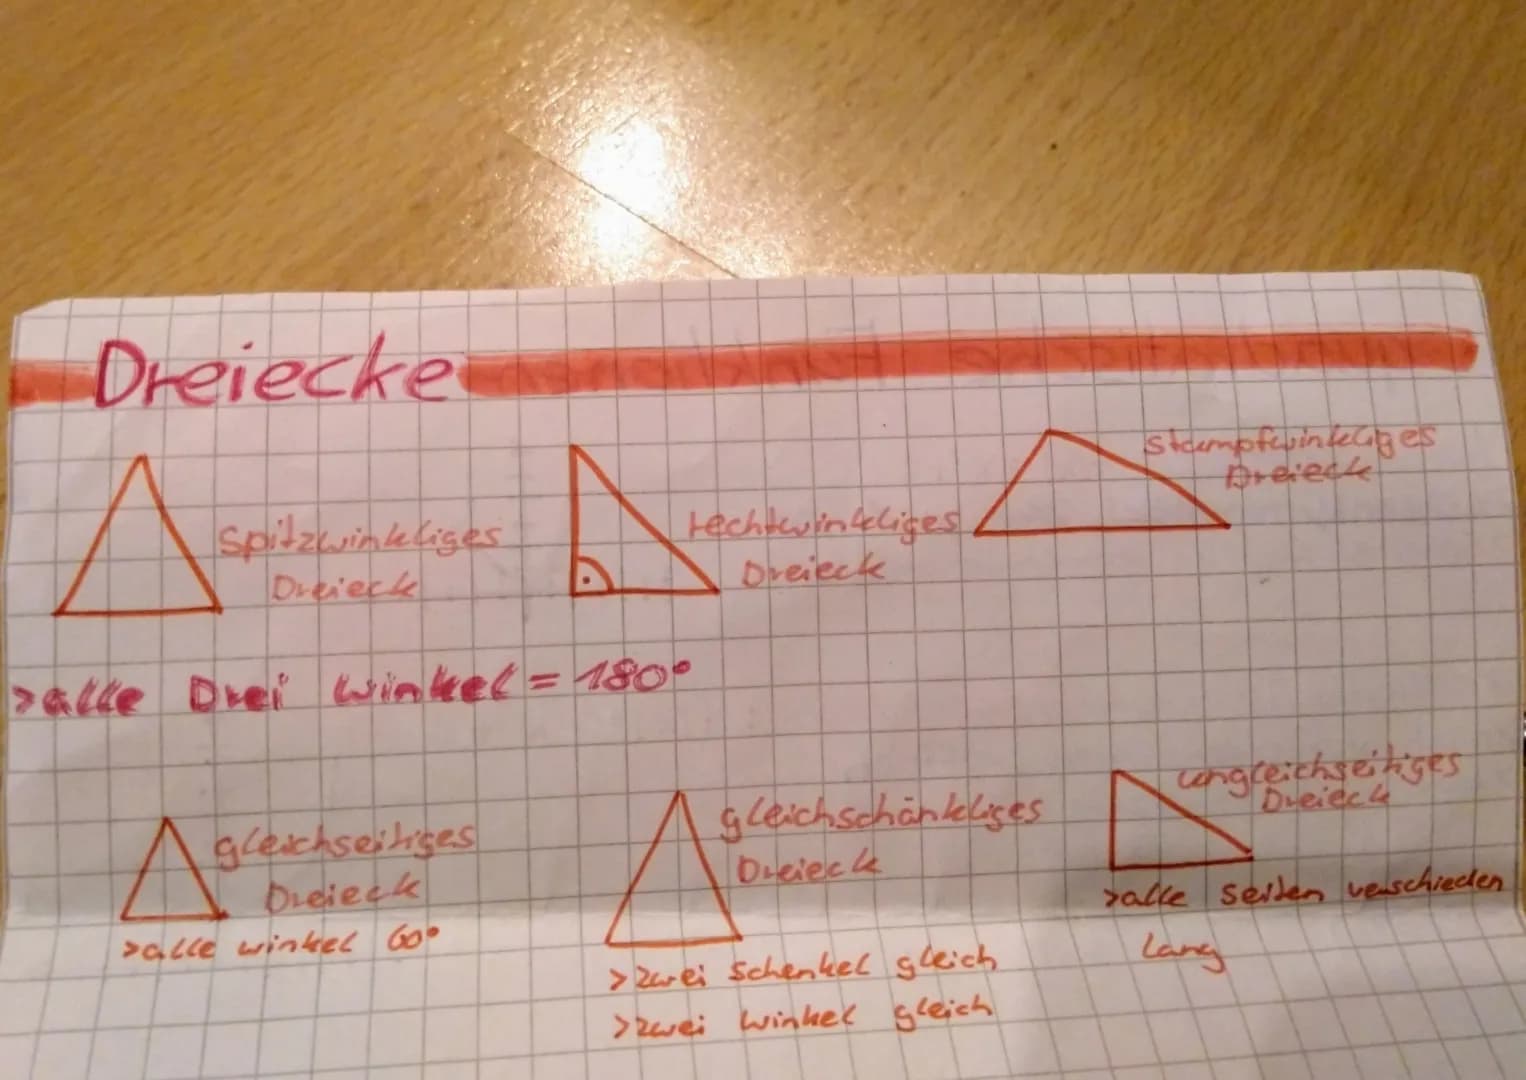 Dreiecke
spitzwinkliges
Dreieck
rechtwinkliges
Dreieck
stumpfwinkliges
Dreieck
>alle Drei winkel = 180°
gleichseitiges
Dreieck
>alle winkel 60°
gleichschänkliges
Dreieck
>zwei Schenkel gleich
>zwei Winkel gleich
ungleichseitiges
Dreieck
>alle Seiten verschieden
lang